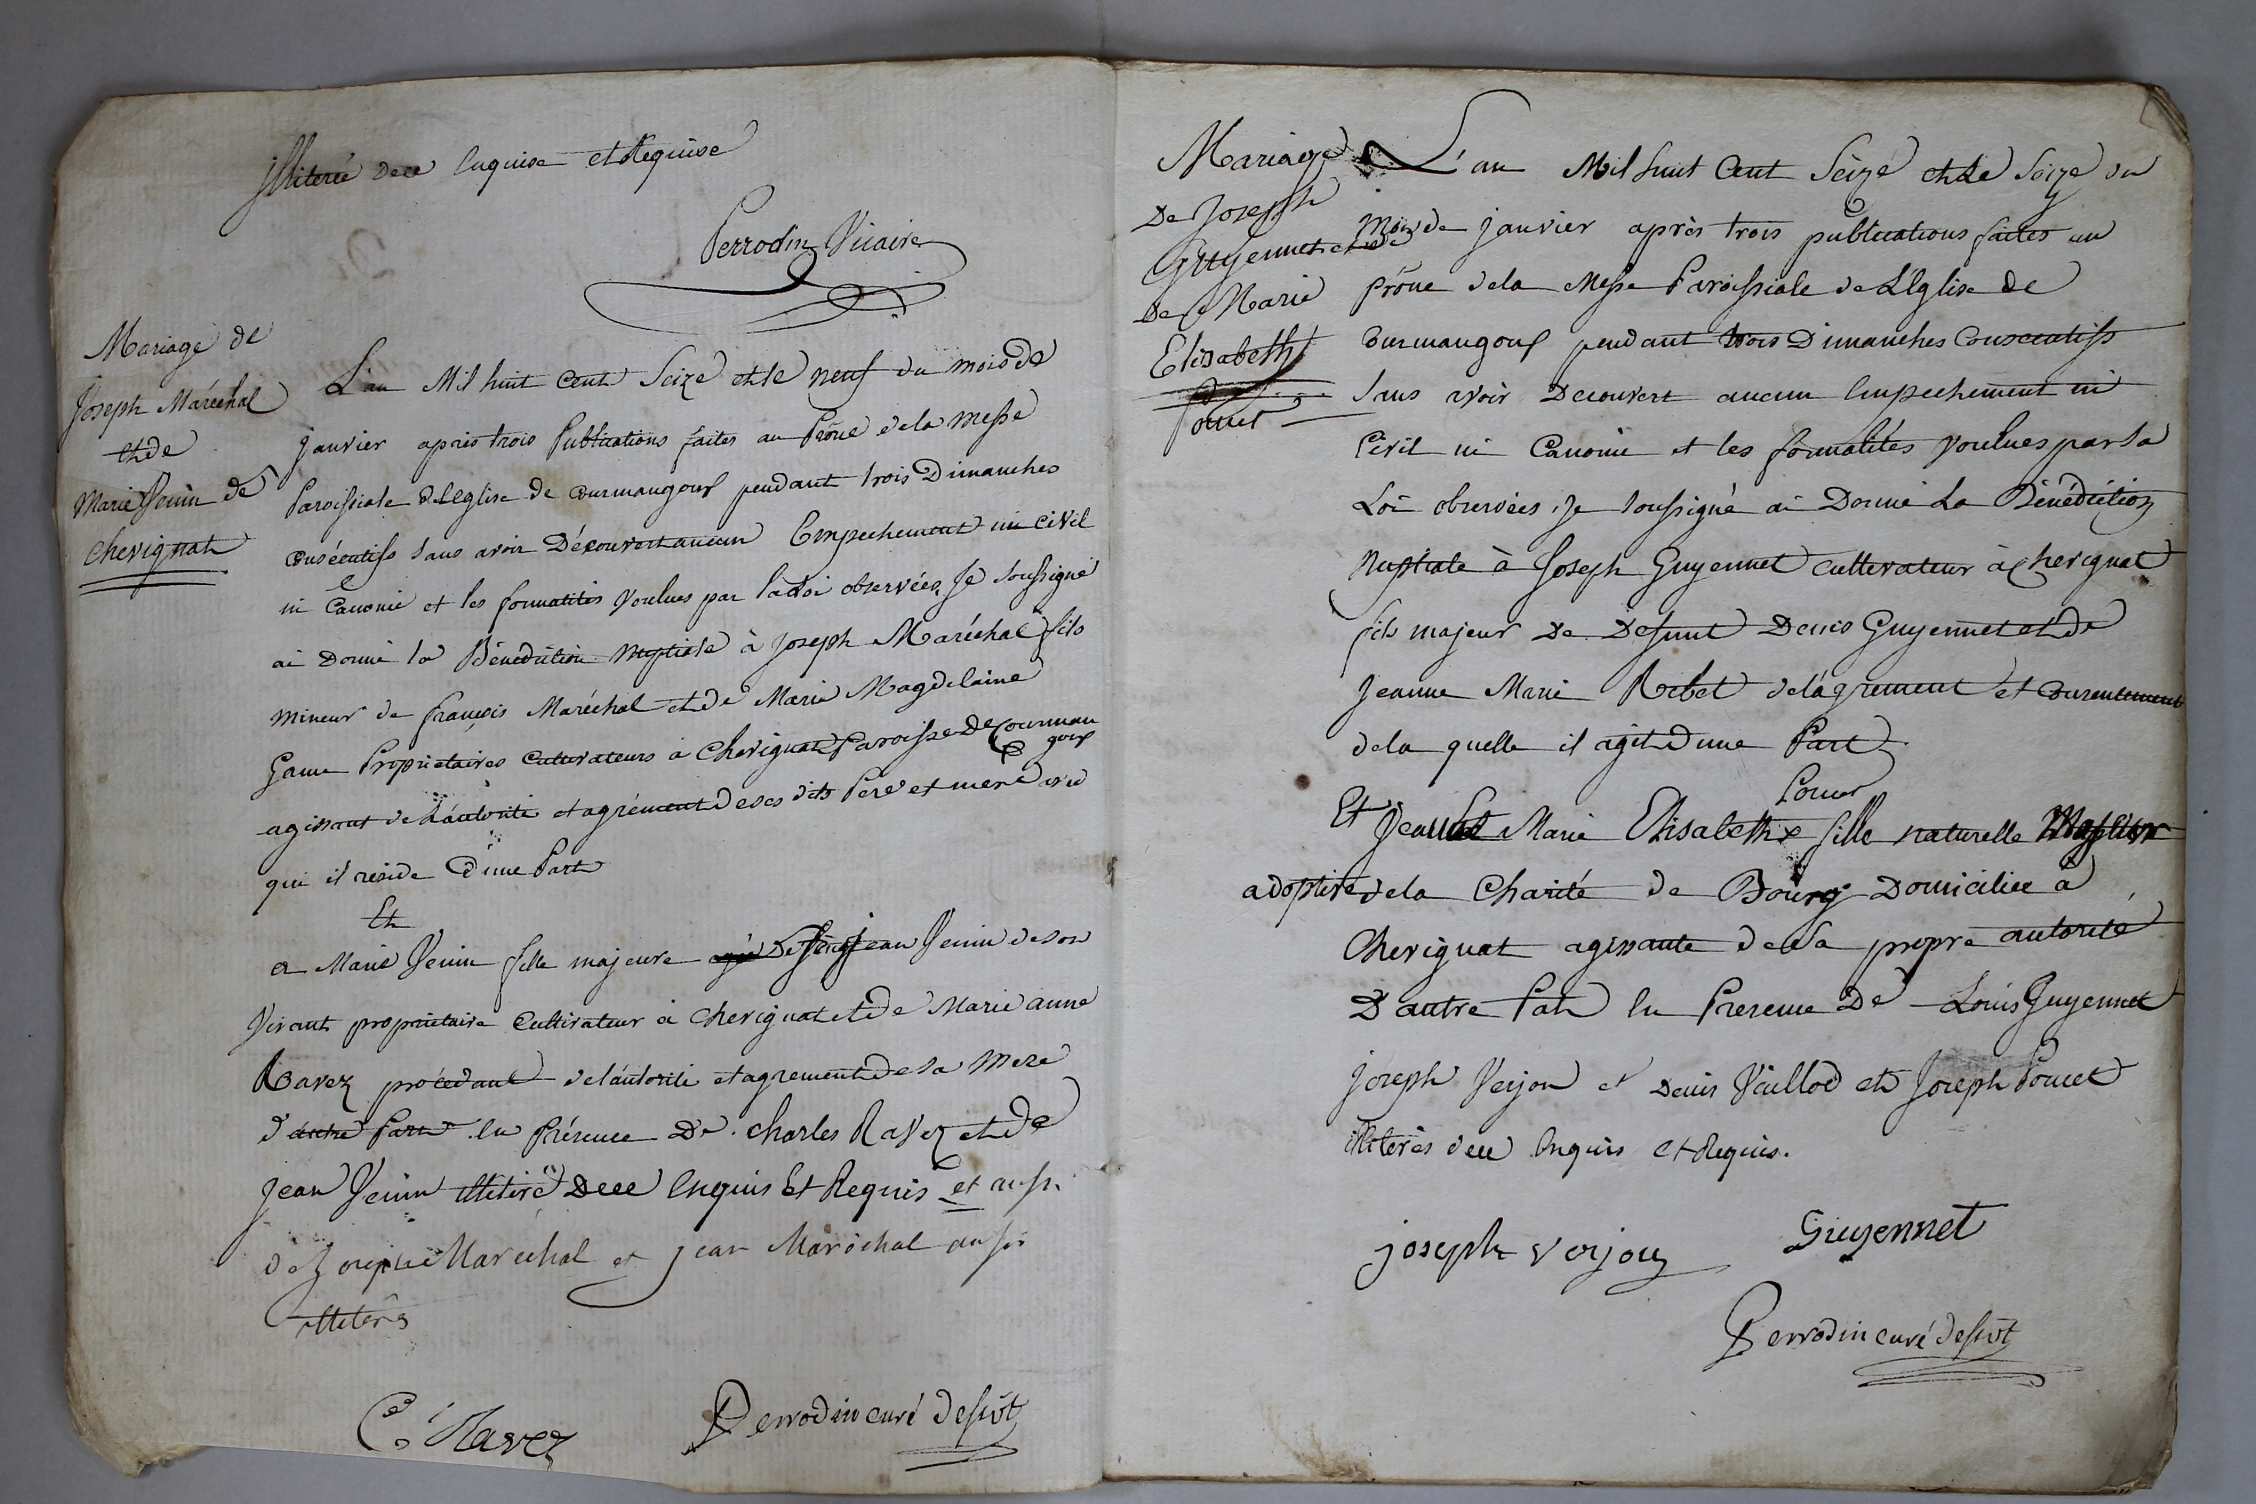 illiterée de ce enquise et Requise
Perrodin Vicaire
Mariage de
Joseph Maréchal
et de
Marie Venin de
Chevignat
L'an Mil huit Cent Seize et le neuf du mois de
janvier après trois Publications faites au Prône de la Messe
Paroissiale de L'Eglise de Courmangoux pendant trois Dimanches
consécutifs sans avoir Découvert aucun Empechement ni civil
ni Canonic et les formalités voulues par la Loi observées, Je soussigné
ai Donné la Bénédiction Nuptiale à Joseph Maréchal fils
mineur de françois Maréchal et de Marie Magdelaine
Propriétaires Cultivateurs à Chevignat Paroisse De Courman
goux
agissant de L'autorité et agrément de ses dits Pere et mere avec
qui il réside D'une Part
Et
a Marie Venin fille majeure jean Venin de son
Vivant propriétaire Cultivateur à Chevignat et de Marie anne
Ravez procédant de l'autorité et agrement de sa Mere
d'autre Part en Présence De Charles Ravez et de
Jean Venin illitéré De ce Enquis Et Requis et aussi
de Joseph Maréchal et jean Maréchal aussi
illiterés
C. Ravez
Perrodin curé dessvt
Mariage
De Joseph
Guyennet et de
De Marie
Elisabeth
Poncet
L'an Mil huit Cent Seize et le Seize du
Mois de janvier après trois publications faites au
Prône de la Messe Paroissiale de L'Eglise de
Courmangoux pendant trois Dimanches Consecutifs
sans avoir Decouvert aucun Empechement ni
Civil ni Canonic et les formalités voulues par la
Loi observées, Je soussigné ai Donné La Bénédiction
Nuptiale à Joseph Guyennet cultivateur à Chevignat
fils majeur De Defunt Denis Guyennet et de
Jeanne Marie Rebet de l'agrement et consentement
de la quelle il agit D'une Part
Poncet
Et Marie Elisabeth fille naturelle
adoptive de la Charité de Bourg Domiciliée à
Chevignat agissante de sa propre autorité
D'autre Part En Presence De Louis Guyennet
joseph Verjon et Denis Vuillod et Joseph Poncet
illiterés de ce Enquis et Requis.
joseph verjon
Guyennet
Perrodin curé dessvt